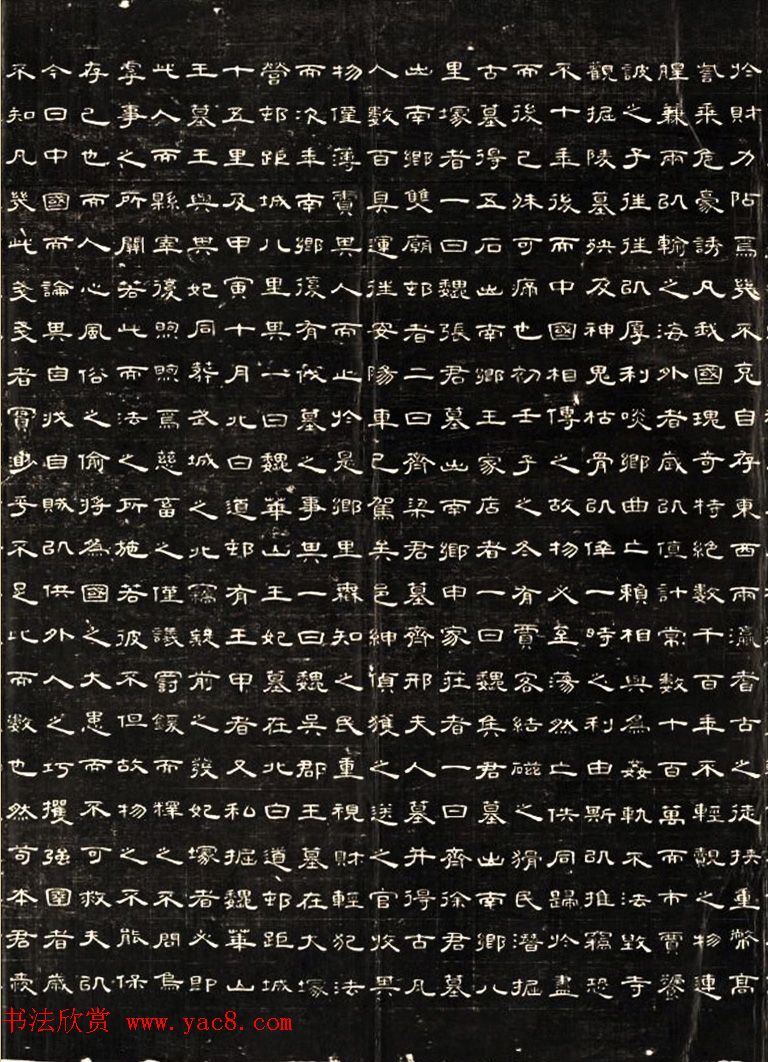 於財力阽焉幾不克自存東西兩瀛者古之徒挾重幣高
訾乘危豪誘凡我國瑰奇特絕數千百年不輕覯之物連
兼兩㠯輸之海外者歲㠯億計常數十百萬而市賈饕
詖之子往往㠯厚利啖鄉曲亡賴相與為姦軌不法毀寺
觀掘陵墓殃及神鬼枯骨㠯倖一時之利由斯㠯推竊恐
不十年後而中國相傳之故物必至蕩然亡佚同歸於盡
而後已殊可痛也初壬子之冬有賈客結磁之猾民潛掘
古墓得五石出南鄉王家店者一曰魏雋君墓出南鄉八
里塚者一曰魏張君墓出南鄉申家莊者一曰齊徐君墓
出南鄉雙廟邨者二曰齊梁君墓齊邢夫人墓并得古凡
人數百具運往安陽車已駕矣邑紳偵獲之送之官收其
物僅薄責其人而止於是鄉里森知之民重視財輕犯法
而次年南鄉復有伐墓之事其一曰魏吳郡王墓在大塚
營邨距城八里其一曰魏華山王妃墓在北白道邨距城
十五里及甲寅十月北白道邨有王甲者又私掘魏華山
王墓王與其妃同葬武城之北竊毀前之發妃塚者必即
此人而縣宰復煦煦焉慈畜之僅議罰鍰而釋之不問烏
虖事之所關若此而法之所施若彼不但故物之不能保
存已也而人心風俗之偷將為國之大患而不可救夫㠯
今日中國而論其自伐自賊㠯供外人之巧攫強圉者歲
不知凡幾此戔戔者實尠乎不足比而數也然苟本君
书法欣赏 www.yac8.com